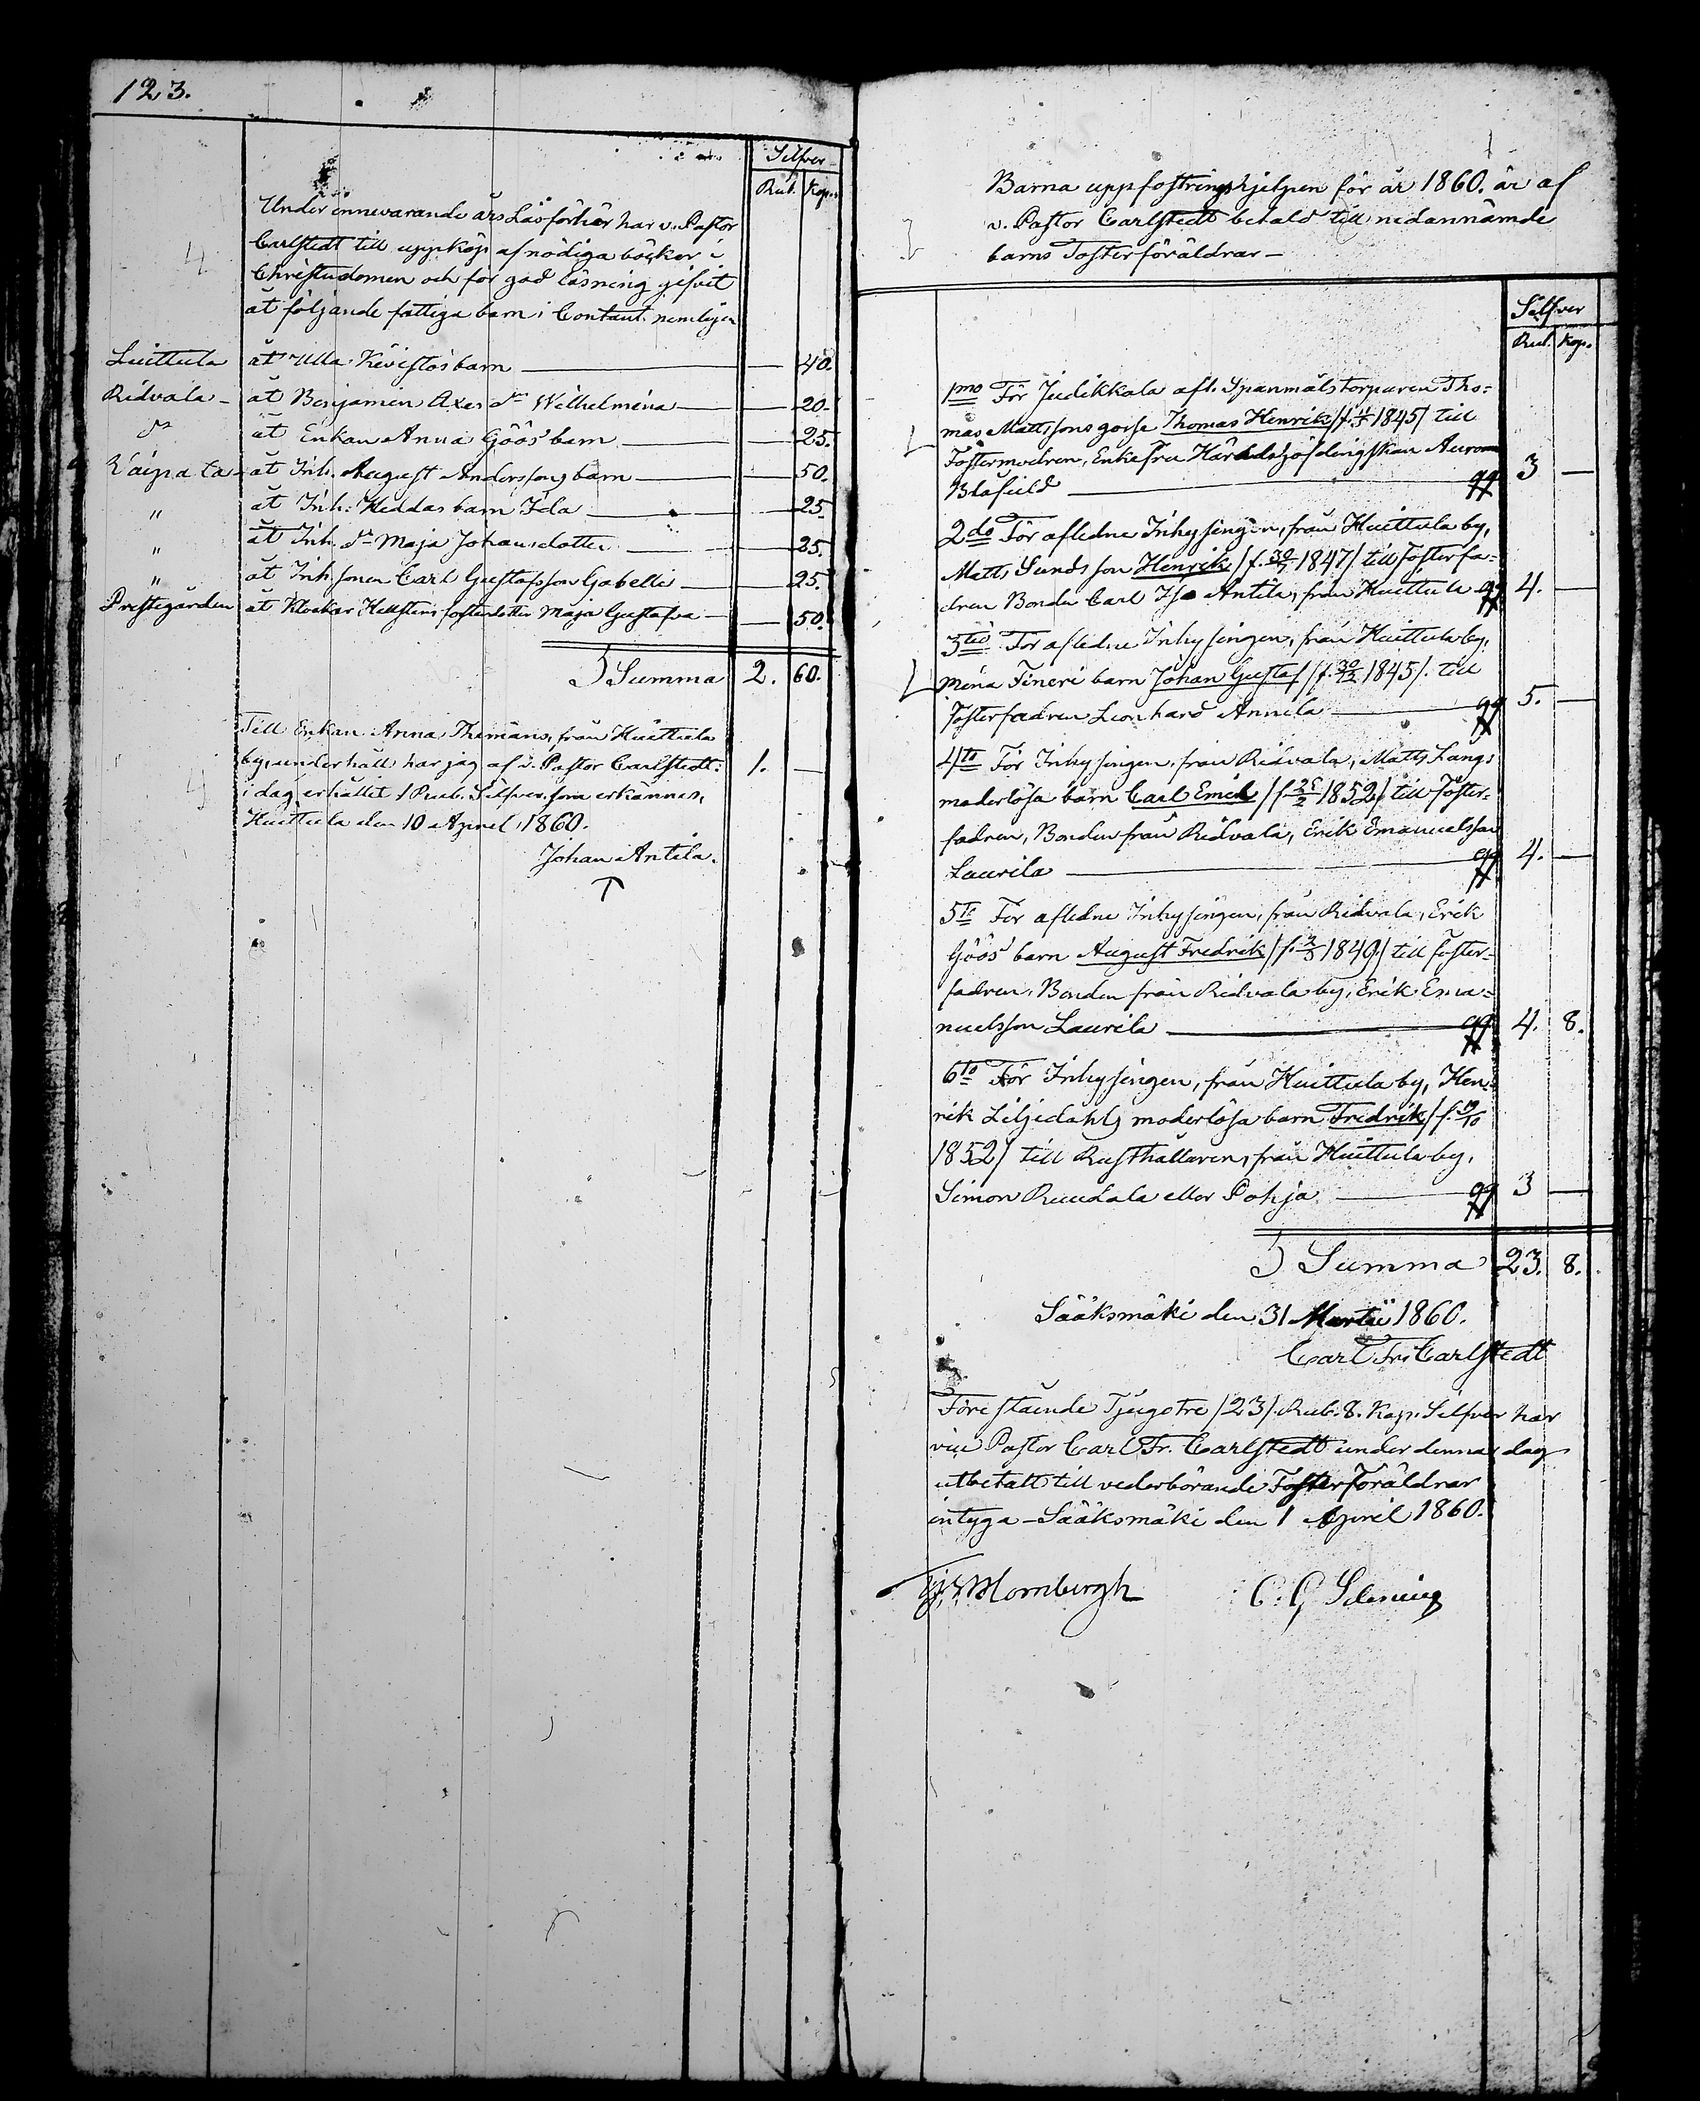 123.
Silfver
Rub. Kop.
Under innevarande års Läsförhär har v. Pastor
Carlstedt till uppköp af nödiga böcker i
Christendomen och för god läsning gifvit
åt följande fattiga barn i Contant nemligen
Huittula åt Ulla Kivistös barn — 40.
Ridvala åt Benjamin Axes dr Wilhelmina — 20.
dº åt Enkan Anna Göös barn — 25.
åt Inh. August Anderssons barn — 50.
" åt Inh. Heddas barn Ida — 25.
" åt Inh. dr Maja Johansdotter — 25.
" åt Inh. sonen Carl Gustafsson Gabelli — 25.
Prestegården åt Klockar Hellstens fosterdotter Maja Gustafva — 50.
Summa 2. 60.
Till Enkan Anna Thimäns, från Huittula
by, underhåll har jag af v. Pastor Carlstedt
i dag erhållit 1 Rub. Silfver, som erkännes, 1. —
Huittula den 10 April 1860.
Johan Antila.
Barna uppfostringshjelpen för år 1860. är af
v. Pastor Carlstedt betald till nedannämde
barns Fosterföräldrar —
Silfver
Rub. Kop.
1mo För Judikkala afl. Spanmåls torparen Tho=
mas Mattssons gosse Thomas Henrik /f. 1845/ till
Fostermodren, Enkefru Häradshöfdingskan
Blåfield — 3 —
2do För afledne Inhysingen, från Huittula by,
Matts Sunds son Henrik /f. 1847/ till Fosterfa=
dren Bonden Carl Antila, från Huittula 4. —
3tio För aflidne Inhysingen, från Huittula by,
Mina Fineri barn Johan Gustaf /f. 1845/. till
Fosterfadren Leonhard Annila — 5. —
4to För Inhysingen, från Ridvala, Matts Längs
moderlösa barn Carl Emil /f. 1852/ till Foster=
fadren, Bonden från Ridvala, Erik Emanuelsson
Laurila — 4. —
5to För aflidne Inhysingen, från Ridvala, Erik
Göös barn August Fredrik /f. 1849/ till foster=
fadren, Bonden från Ridvala by, Erik Ema=
nuelsson Laurila — 4. 8.
6to För Inhysingen, från Huittula by, Hen=
rik Liljedahls moderlösa barn Fredrik /f. 19/10
1852/ till Rusthållaren, från Huittula by,
Simon Ruudala eller Pohja — 3 —
Summa 23. 8.
Sääksmäki den 31 Martii 1860.
Carl Fr. Carlstedt
Förestående Tjugotre /23/. Rub. 8. Kop. Silfver har
vice Pastor Carl Fr. Carlstedt under denna dag
utbetalt till vederbörande Fosterföräldrar
intyga — Sääksmäki den 1 April 1860.
Mornbergh C. G.